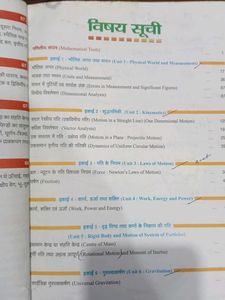 विषय सूची
गणितीय साधन (Mathematical Tools)
इकाई 1 - भौतिक जगत तथा मापन (Unit 1 : Physical World and Measurement)
भौतिक जगत (Physical World)
मात्रक तथा मापन (Units and Measurement)
मापन में त्रुटियाँ एवं सार्थक अंक (Errors in Measurement and Significant Figures)
विमीय विश्लेषण (Dimensional Analysis)
इकाई 2 - शुद्धगतिकी (Unit 2 : Kinematics)
सरल रेखीय गति (एकविमीय गति) (Motion in a Straight Line) (One Dimensional Motion)
सदिश विश्लेषण (Vector Analysis)
समतल में गति : प्रक्षेप्य गति (Motion in a Plane : Projectile Motion)
एकसमान वृत्तीय गति की गतिकी (Dynamics of Uniform Circular Motion)
इकाई 3 - गति के नियम (Unit 3 : Laws of Motion)
बल - न्यूटन के गति विषयक नियम (Force : Newton's Laws of Motion)
घर्षण (Friction)
इकाई 4 - कार्य, ऊर्जा तथा शक्ति (Unit 4 : Work, Energy and Power)
कार्य, शक्ति एवं ऊर्जा (Work, Power and Energy)
इकाई 5 - दृढ़ पिण्ड तथा कणों के निकाय की गति
(Unit 5 : Rigid Body and Motion of System of Particles)
द्रव्यमान केन्द्र या संहति केन्द्र (Centre of Mass)
घूर्णी गति तथा जड़त्व आघूर्ण (Rotational Motion and Moment of Inertia)
इकाई 6 - गुरुत्वाकर्षण (Unit 6 : Gravitation)
सार्वत्रिक गुरुत्वाकर्षण (Universal Gravitation)